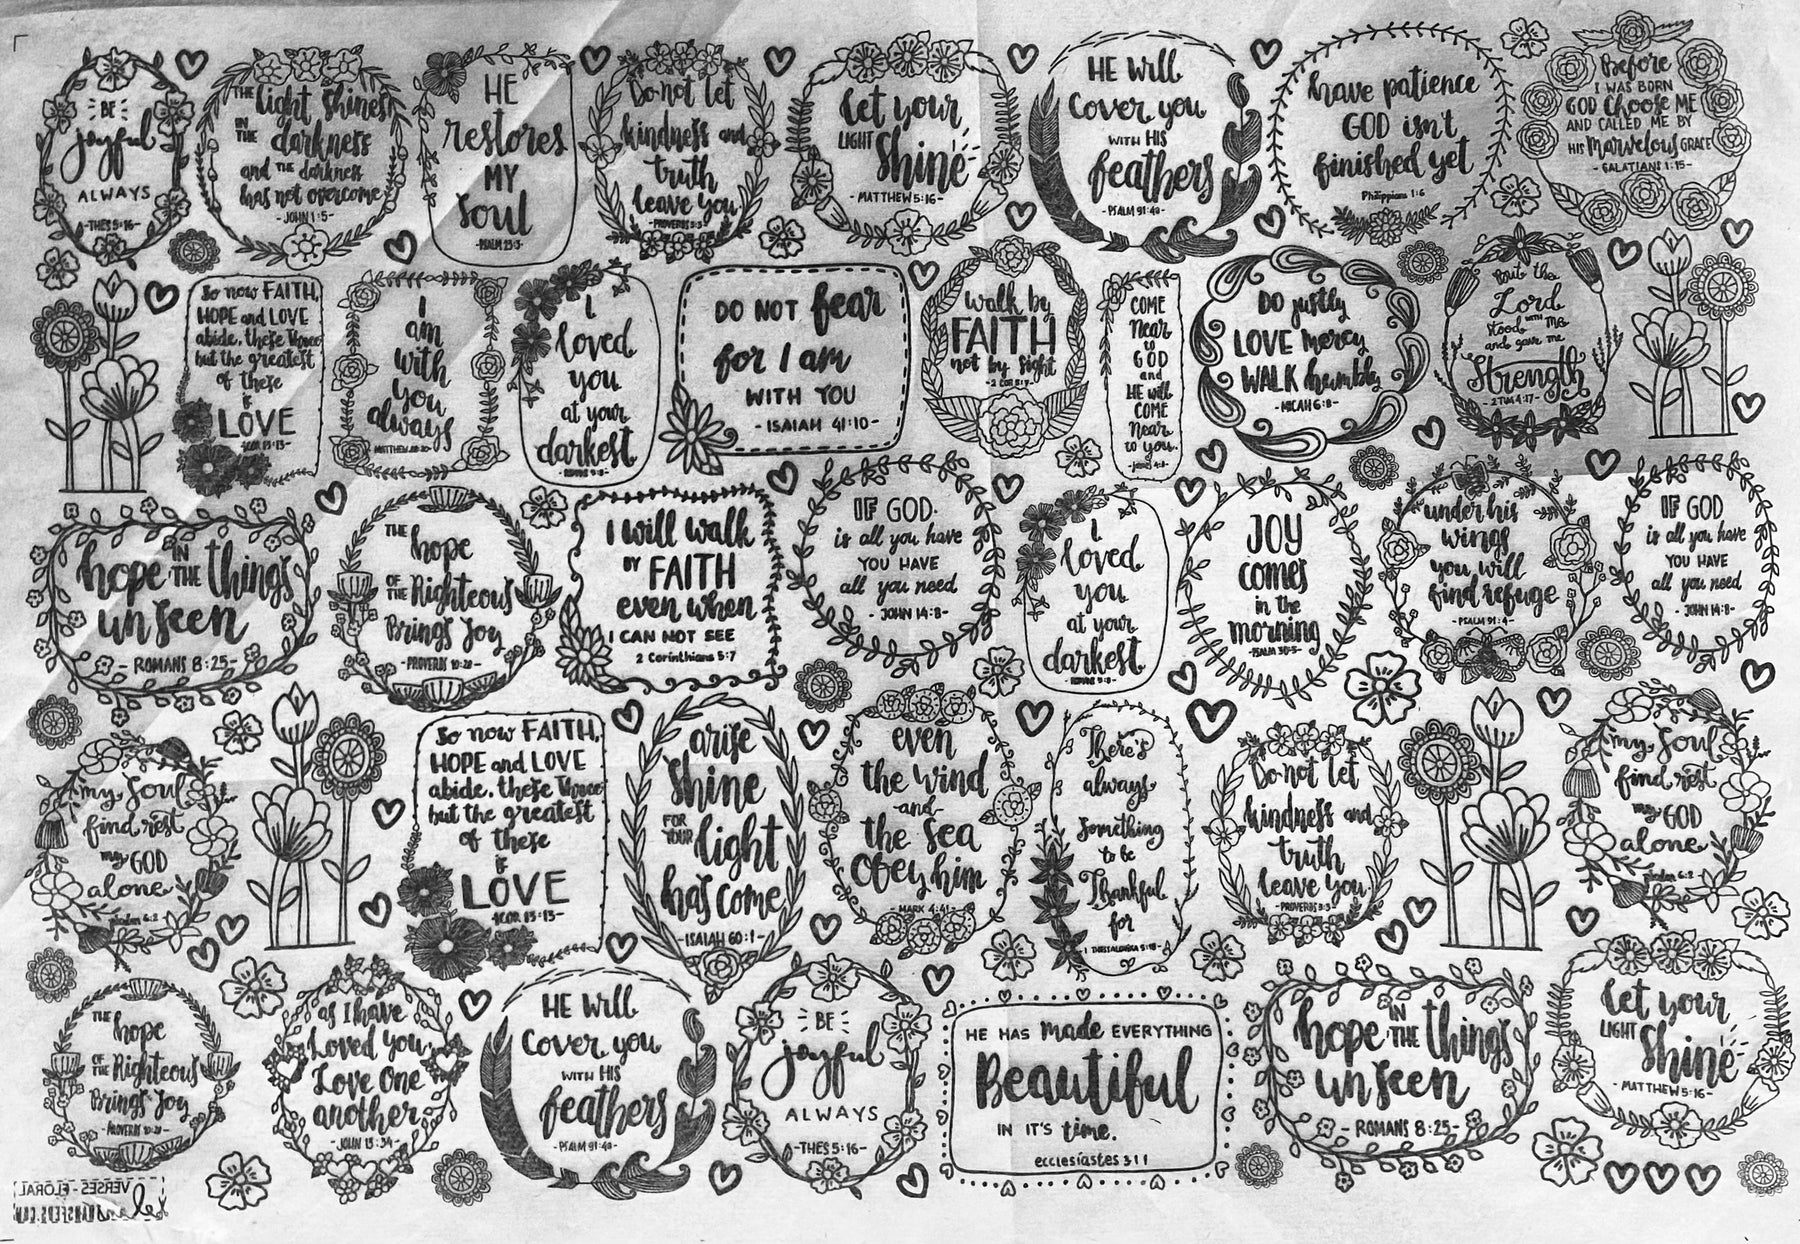 BE
joyful
ALWAYS
-THES 5:16-
THE light shines
IN THE darkness
and THE darkness
has not overcome
-JOHN 1:5-
HE
restores
MY
Soul
-PSALM 23:3-
Do not let
kindness and
truth
leave you
-PROVERBS 3:3-
let your
LIGHT Shine
-MATTHEW 5:16-
HE will
Cover you
WITH HIS
feathers
-PSALM 91:4a-
have patience
GOD isn't
finished yet
Philippians 1:6
Before
I WAS BORN
GOD Choose ME
AND CALLED ME BY
HIS Marvelous GRACE
-GALATIANS 1:15-
So now FAITH,
HOPE and LOVE
abide, these Three
but the greatest
of these
is
LOVE
-1COR 13:13-
I
am
with
you
always
MATTHEW 28:20-
I
loved
you
at your
darkest
-ROMANS 5:8-
DO NOT fear
for I am
WITH YOU
-ISAIAH 41:10-
walk by
FAITH
not by sight
-2 COR 5:7-
COME
Near
to
GOD
and
HE will
COME
Near
to you
-James 4:8-
DO justly
LOVE mercy
WALK humbly
-MICAH 6:8-
But the
Lord
stood WITH ME
and gave me
Strength
-2 TIM 4:17-
hope IN THE things
unseen
-ROMANS 8:25-
THE hope
OF THE Righteous
Brings Joy
-PROVERBS 10:28-
I will walk
BY FAITH
even when
I CAN NOT SEE
2 Corinthians 5:7
IF GOD
is all you have
YOU HAVE
all you need
-JOHN 14:8-
I
loved
you
at your
darkest
-ROMANS 5:8-
JOY
comes
in the
morning
-PSALM 30:5-
under his
wings
you will
find refuge
-PSALM 91:4-
IF GOD
is all you have
YOU HAVE
all you need
-JOHN 14:8-
my Soul
find rest
my GOD
alone
psalm 62:2
So now FAITH,
HOPE and LOVE
abide, these Three
but the greatest
of these
is
LOVE
-1COR 13:13-
arise
Shine
FOR YOUR light
has come
-ISAIAH 60:1-
even
the wind
-and-
the sea
Obey him
-MARK 4:41-
There's
always
Something
to be
Thankful
for
-1 THESSALONIKA 5:18-
Do not let
kindness and
truth
leave you
-PROVERBS 3:3-
my Soul
find rest
my GOD
alone
psalm 62:2
THE hope
OF THE Righteous
Brings Joy
-PROVERBS 10:28-
as I have
Loved you,
Love One
another
-JOHN 13:34-
HE will
Cover you
WITH HIS
feathers
-PSALM 91:4a-
BE
joyful
ALWAYS
-THES 5:16-
HE HAS made EVERYTHING
Beautiful
IN IT'S time.
ecclesiastes 3:11
hope IN THE things
unseen
-ROMANS 8:25-
let your
LIGHT Shine
-MATTHEW 5:16-
VERSES - FLORAL